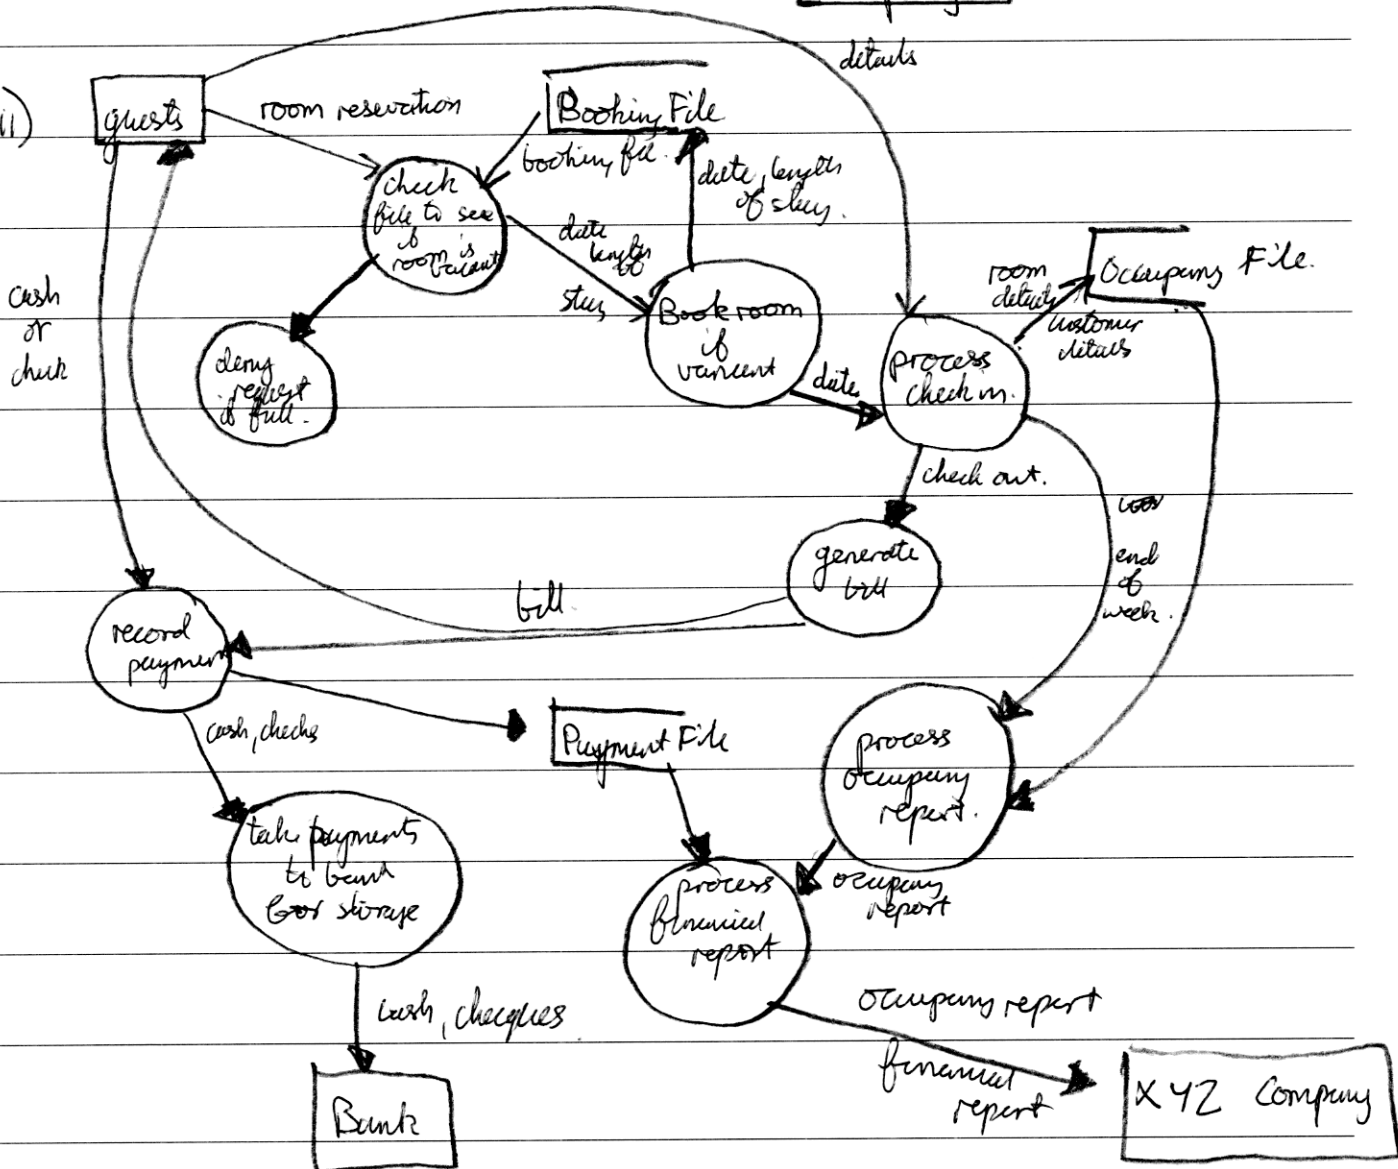 details
ii)
guests
room resevation
Booking File
booking file.
date, length
of stay.
check
file to see
if
room is
vacant
date
length
of
stay
room
details
Occupany File.
customer
details
cash
or
check
Book room
if
varcent
deny
request
if full.
date
process
check in.
check out.
end
of
week.
generate
bill
bill.
record
payment
cash, checks
Payment File
process
occupany
report.
take payments
to bank
for storage
process
financial
report
occupany
report
cash, cheques
occupany report
financial
report
Bank
XYZ Company